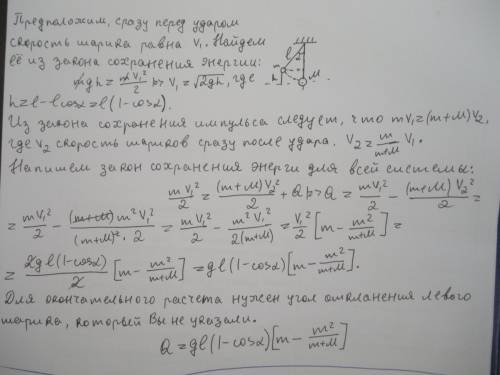 Предположим, сразу перед ударом
скорость шарика равна V₁. Найдем
её из закона сохранения энергии:
mgh = mV₁²/2 => V₁ = √2gh, где
h = l - l cosα = l(1 - cosα).
l α m h M
Из закона сохранения импульса следует, что mV₁ = (m+M)V₂,
где V₂ скорость шариков сразу после удара. V₂ = m/(m+M) V₁.
Напишем закон сохранения энерги для всей системы:
mV₁²/2 = (m+M)V₂²/2 + Q => Q = mV₁²/2 - (m+M)V₂²/2 =
= mV₁²/2 - (m+M)m²V₁²/((m+M)²·2) = mV₁²/2 - m²V₁²/(2(m+M)) = V₁²/2 [m - m²/(m+M)] =
= 2gl(1-cosα)/2 [m - m²/(m+M)] = gl(1-cosα)[m - m²/(m+M)].
Для окончательного расчета нужен угол отклонения левого
шарика, который Вы не указали.
Q = gl(1-cosα)[m - m²/(m+M)]